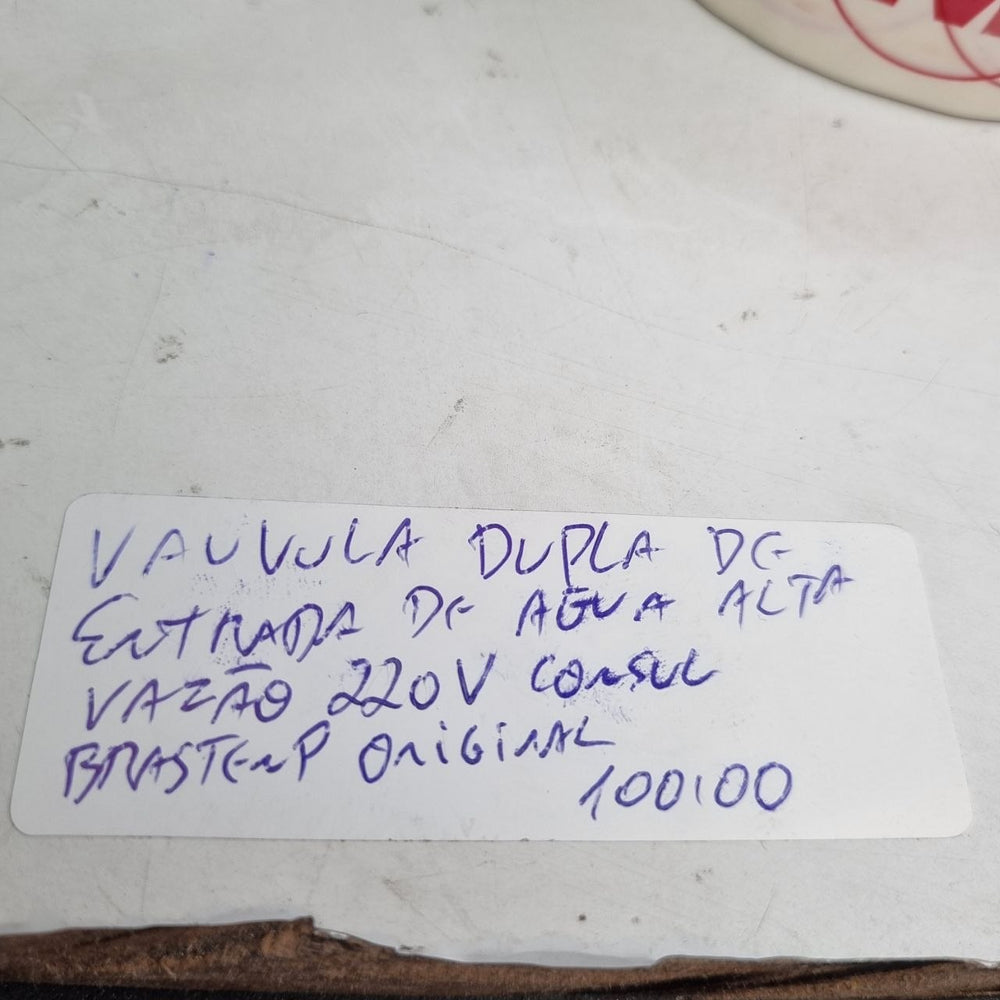 VAUVULA DUPLA DE
ENTRADA DE AGUA ALTA
VAZÃO 220V CONSUL
BRASTEMP ORIGINAL
100,00